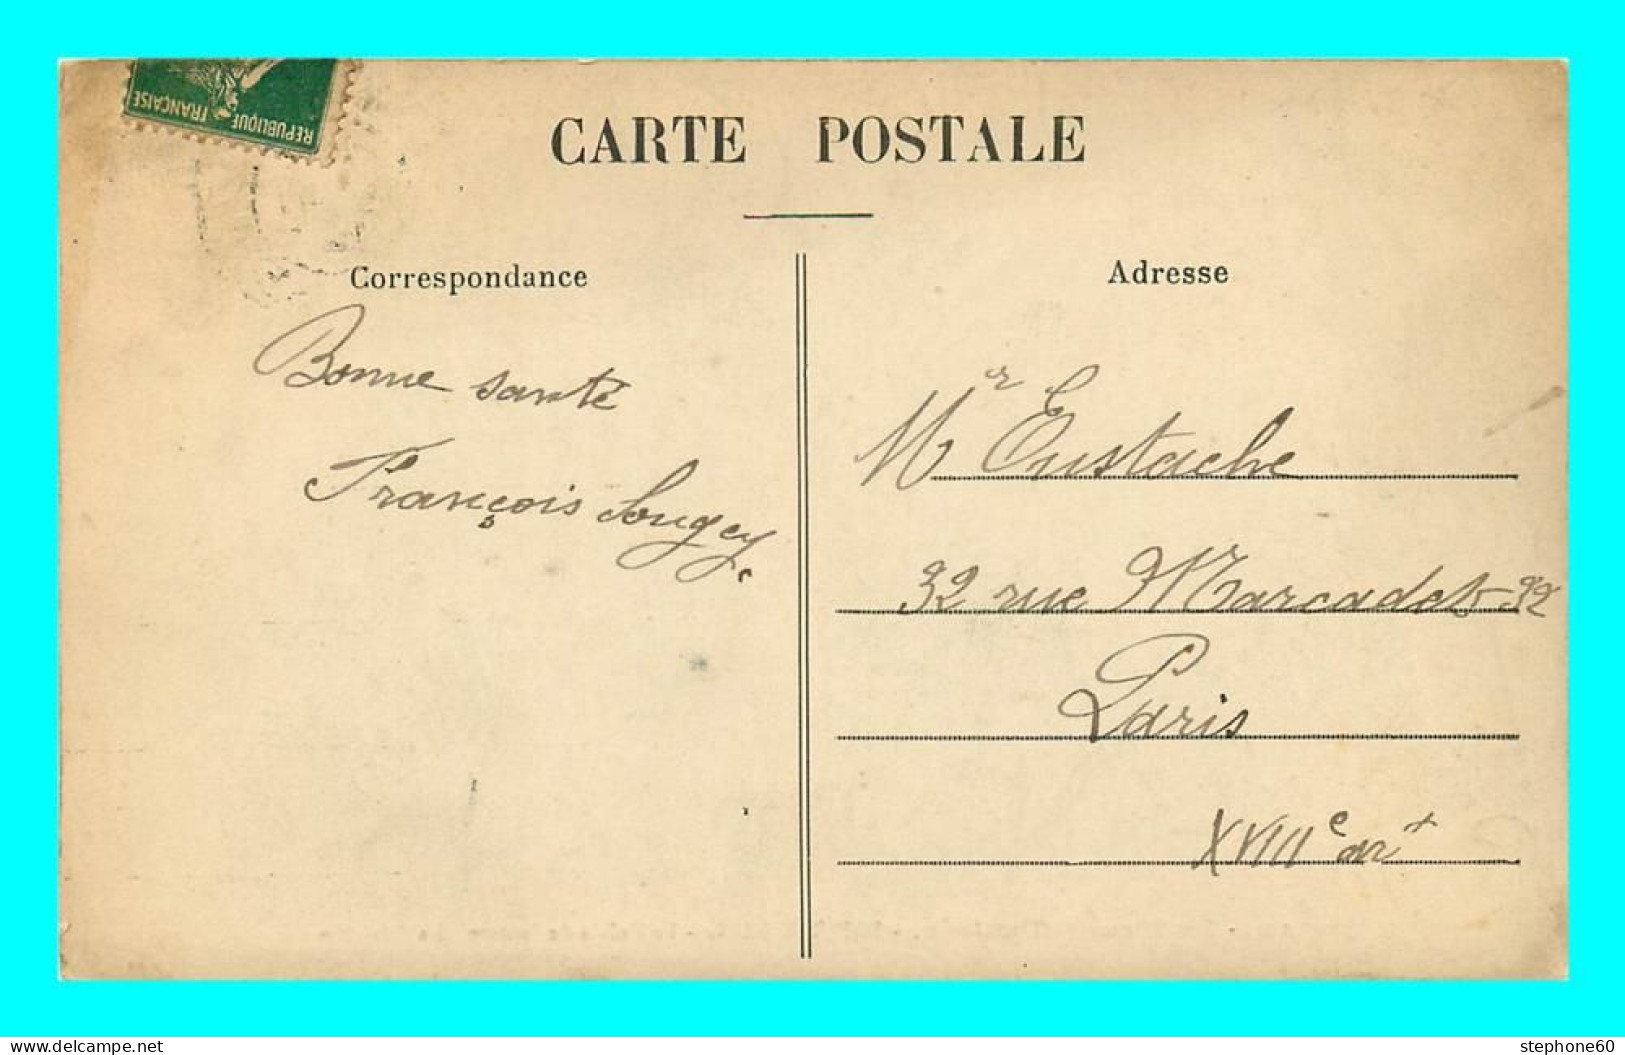 REPUBLIQUE FRANÇAISE
CARTE POSTALE
Correspondance
Bonne santé
François Sougey.
Adresse
Mr Eustache
32 rue Marcadet 32
Paris
XVIIIe art
www.delcampe.net
stephone60